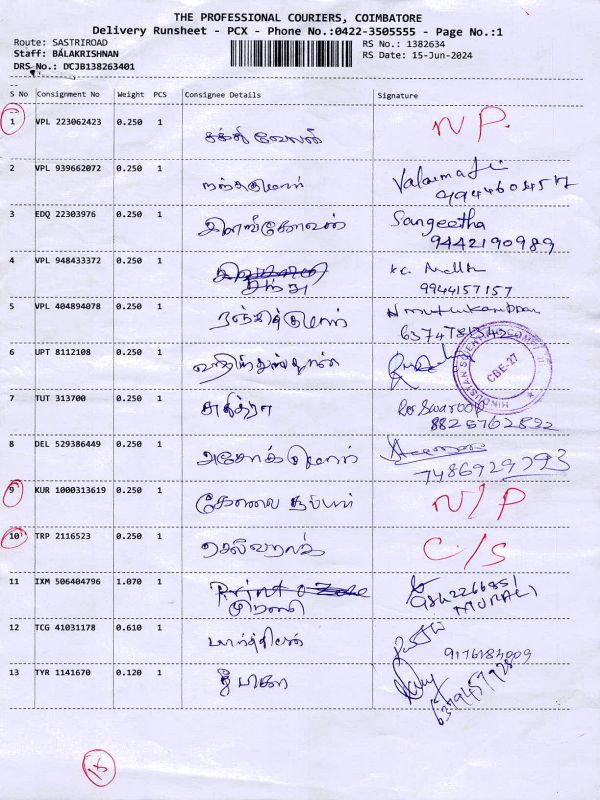 THE PROFESSIONAL COURIERS, COIMBATORE
Delivery Runsheet - PCX - Phone No.:0422-3505555 - Page No.:1
Route: SASTRIROAD RS No.: 1382634
Staff: BALAKRISHNAN RS Date: 15-Jun-2024
DRS No.: DCJB138263401
S No Consignment No Weight PCS Consignee Details Signature
1 VPL 223062423 0.250 1 சக்தி வேலன் N P.
2 VPL 939662072 0.250 1 நந்தகுமார்
3 EDQ 22303976 0.250 1 இளங்கோவன் Sangeetha
9442190989
4 VPL 948433372 0.250 1
சிந்து 9944157157
5 VPL 404894078 0.250 1 ரஞ்சித்குமார்
6 UPT 8112108 0.250 1
HINDUSTAN CBE-27
7 TUT 313700 0.250 1 Swaroop
8825762892
8 DEL 529386449 0.250 1 அசோக்குமார்
7486929293
9 KUR 1000313619 0.250 1 கோவை N/P
10 TRP 2116523 0.250 1 செல்வராஜ் C/S
11 IXM 506404796 1.070 1 Print O Zone
முரளி MURALI
12 TCG 41031178 0.610 1 பார்த்திபன்
9176183009
13 TYR 1141670 0.120 1 தீபிகா